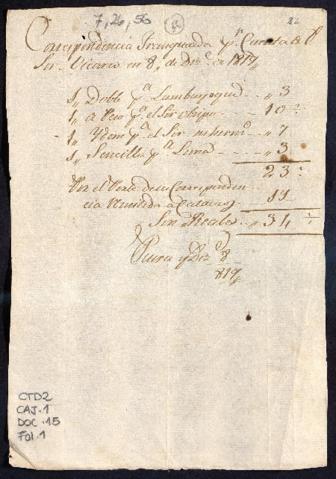 7, 26, 56
22
Correspondencia Franqueada pr. Cuenta del
Sor. Vicario en 8, de Dre. de 1819,,
1,, Doble pa. Lambayeque ,, 3
1,, a Peso pa. el Sor. Obispo 10
1,, Ydem pa. el Sor. mi herno. ,, 7
1,, Sencilla pa. Lima ,, 3
23
Por el Porte de su Corresponden
cia Remitida a Catacaos 11
Son Reales ,, 34
Piura y Dre. 8
819,,
CTD2
CAJ.1
DOC.15
Fol.1